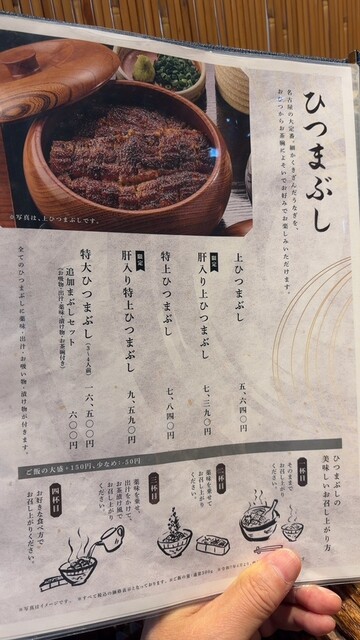 ひつまぶし
名古屋の大定番、細かくきざんだうなぎを、
おひつからお茶碗によそいでお好みでお楽しみいただけます。
※写真は、上ひつまぶしです。
上ひつまぶし 五、六四〇円
限定 肝入り上ひつまぶし 七、三九〇円
特上ひつまぶし 七、八四〇円
限定 肝入り特上ひつまぶし 九、五九〇円
特大ひつまぶし(3〜4人前) 一六、五〇〇円
追加まぶしセット 六〇〇円
(お吸物・出汁・薬味・漬け物・お茶碗付き)
全てのひつまぶしに薬味・出汁・お吸い物・漬け物が付きます。
ご飯の大盛+150円、少なめ-50円
ひつまぶしの
美味しいお召し上がり方
一杯目
そのままで
お召し上がり
ください。
二杯目
薬味を乗せ、
お召し上がり
ください。
三杯目
薬味を乗せ、
出汁をかけて、
お茶漬け風で
お召し上がり
ください。
四杯目
お好きな食べ方で
お召し上がりください。
※写真はイメージです。 ※すべて税込の価格表示となっております。